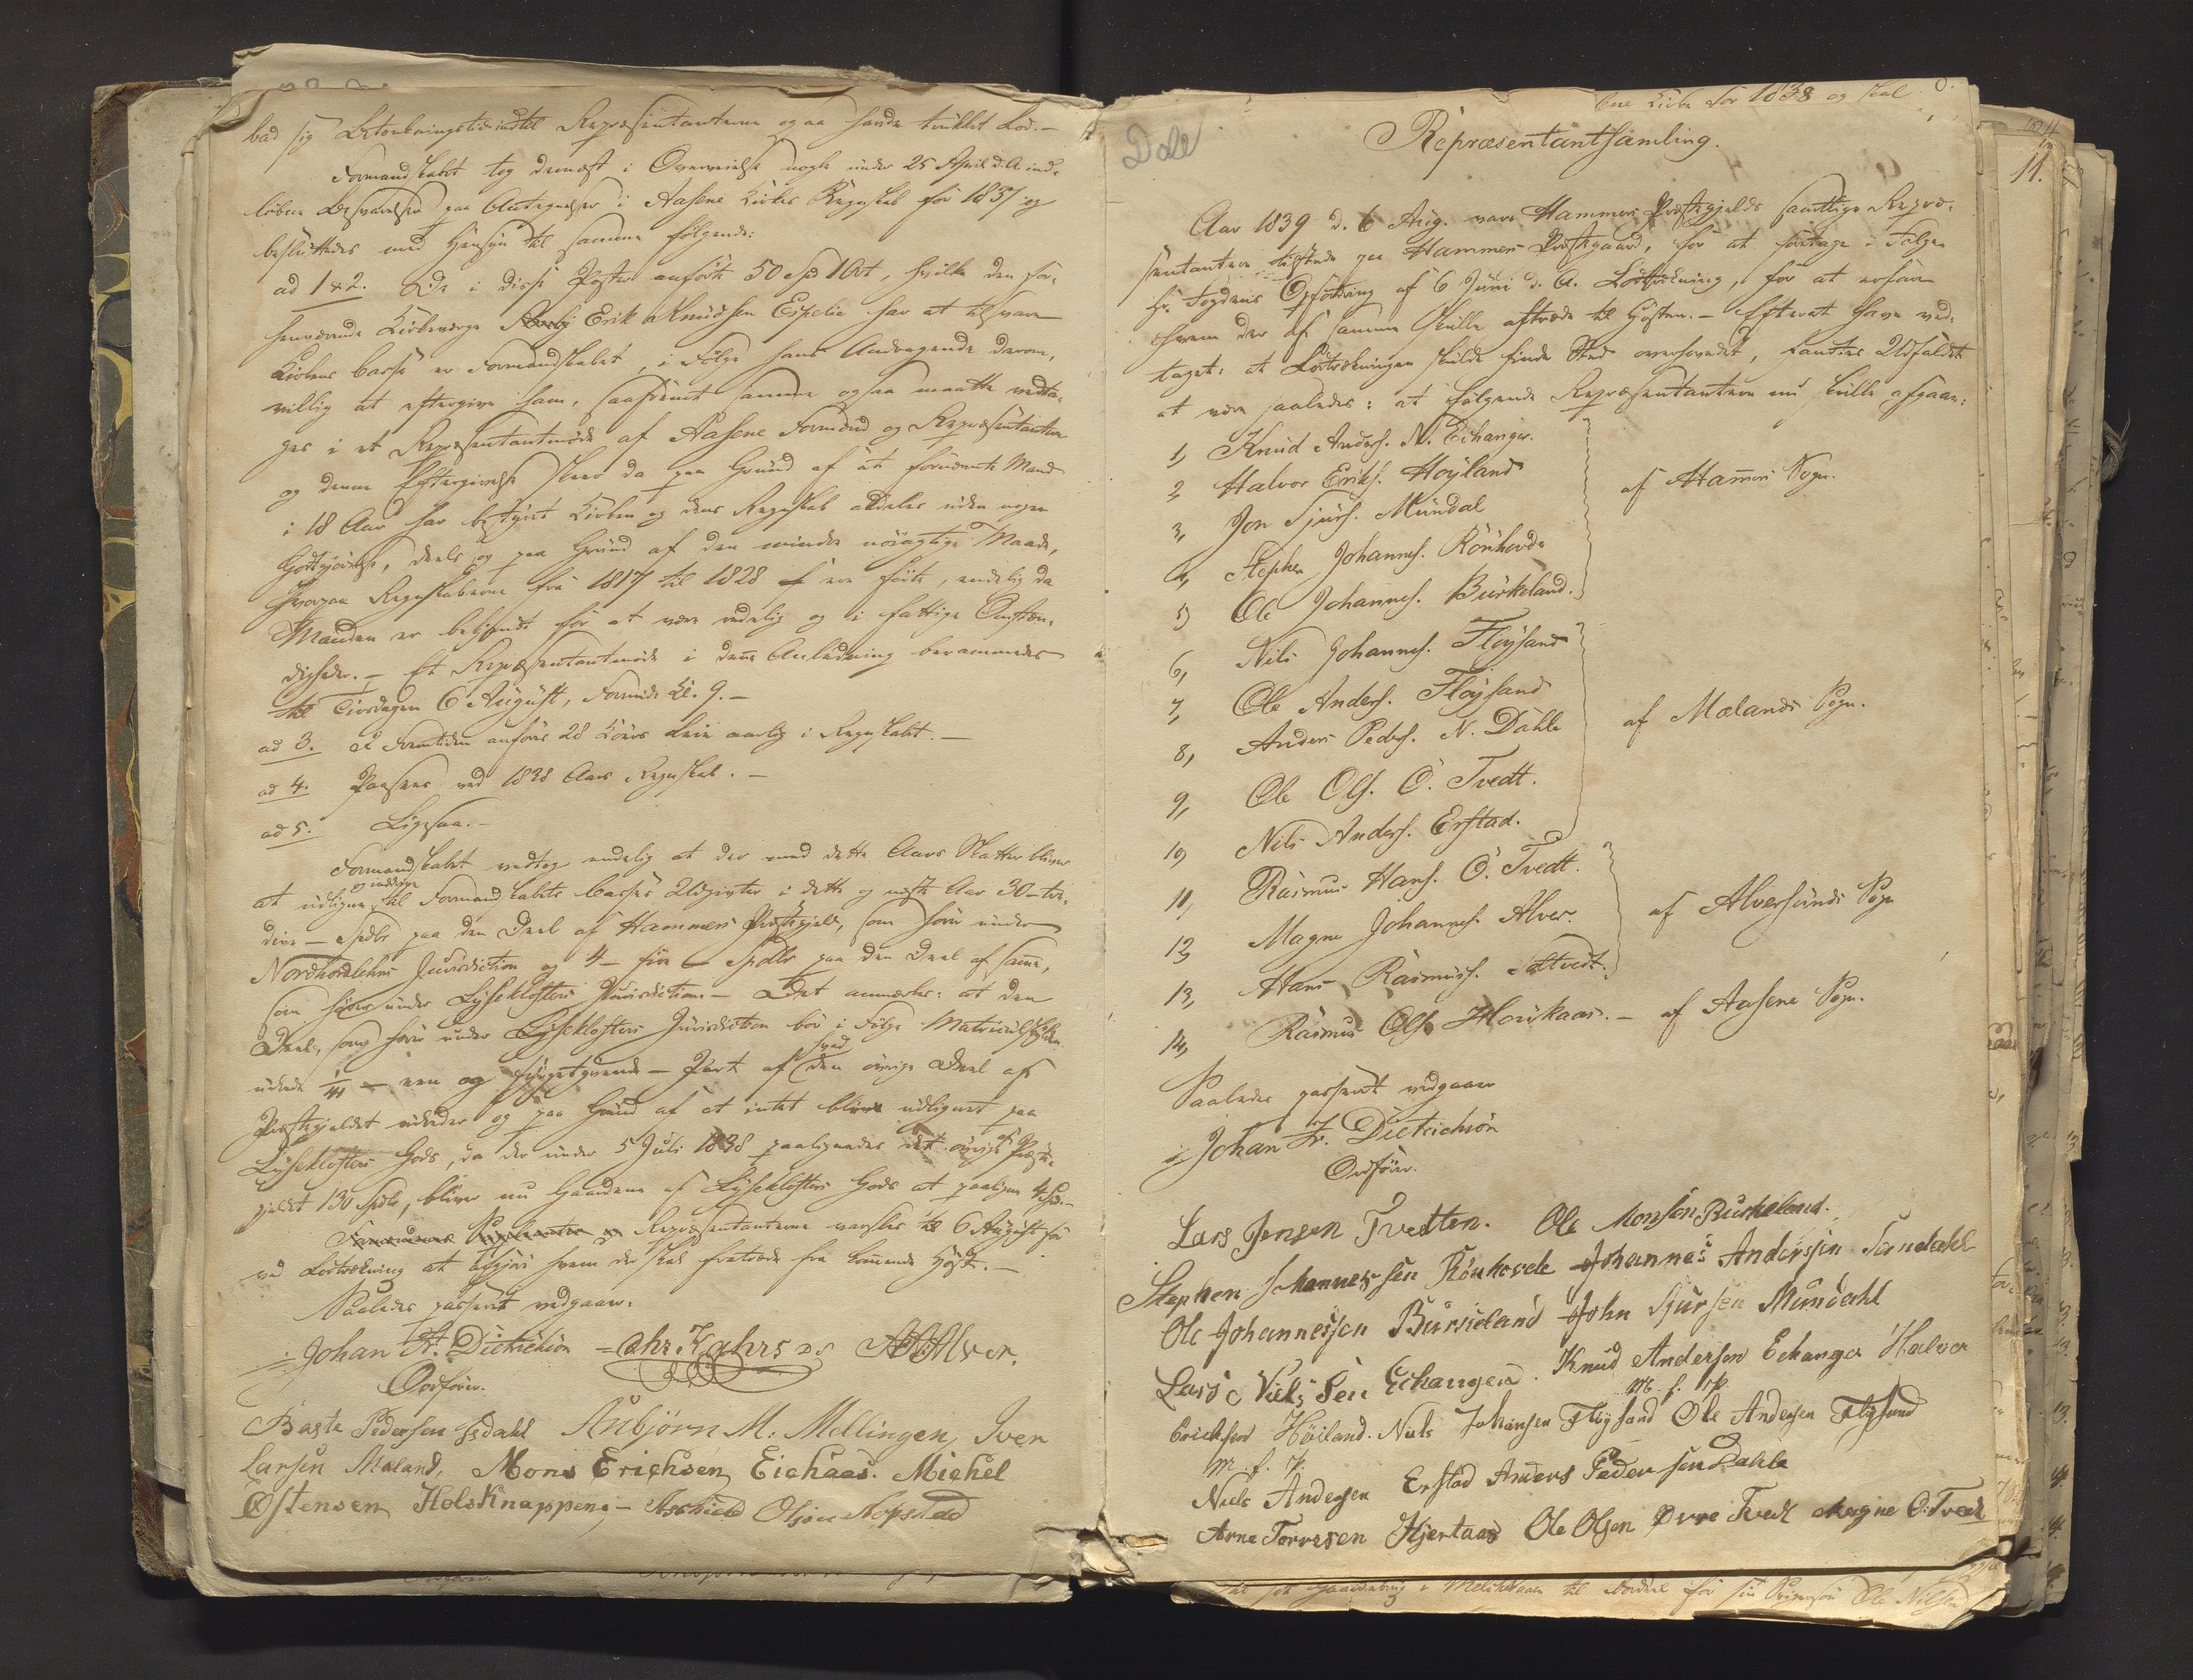 bad sig Betænkningstid indtil Repræsentanterne ogsaa havde trukket Lod.-
Formandskabet tog dernæst i Overveielse nogle under 25 April d. A. ind-
løbne Besvarelser paa Antegnelser i Aasene Kirkes Regnskab for 1837 og
besluttedes med Hensyn til samme følgende:
ad 1 & 2. De i disse Poster anførte 50 Spd 1 Ort, hvilke den for-
henværende Kirkeværge Erik Knudsen Espelie har at tilsvare
Kirkens Casse er Formandskabet, i Følge hans Andragende derom,
villig at eftergive ham, saafremt samme ogsaa maatte vedta-
ges i et Repræsentantmøde af Aasene Formænd og Repræsentanter
og denne Eftergivelse skeer da paa Grund af at fornævnte Mand
i 18 Aar har bestyret Kirken og dens Regnskab aldeles uden nogen
Godtgjørelse, deels og paa Grund af den mindre nøiagtige Maade,
hvorpaa Regnskaberne fra 1817 til 1828 ere førte, endelig da
Manden er bekjendt for at være redelig og i fattige Omstæn-
digheder. - Et Repræsentantmøde i denne Anledning berammedes
til Tirsdagen 6 August, Formid. Kl. 9.-
ad 3. I Fremtiden anføres 28 aarlig i Regnskabet.-
ad 4. Passeres ved 1838 Aars Regnskab.-
ad 5. Ligesaa.-
Formandskabet vedtog endelig at der med dette Aars Skatter bliver
og inddrive
at udligne til Formandskabets Casses Udgivter i dette og næste Aar 30 - tre-
dive - Spdlr paa den Deel af Hammers Præstegjeld, som hører under
Nordhordlehns Jurisdiction og 4 - fire - Spdlr paa den Deel af samme,
som hører under Lyseklosters Jurisdiction - Det anmærkes: at den
Deel, som hører under Lyseklosters Jurisdiction bør i Følge Matricul
udrede 1/41 - een og fyrgetyvende - Part af hvad den øvrige Deel af
Præstegjeldet udreder og paa Grund af at intet blev udlignet paa
Lyseklosters Gods, da der under 5 Juli 1838 paalignedes det øvrige af Præste-
gjeldet 130 Spdlr, bliver nu Gaardene af Lyseklosters Gods at paaligne 4 Spd.-
Repræsentanterne varsles til 6 August for
ved Lodtrækning at afgjøre hvem der skal fratræde fra kommende Høst.-
Saaledes passeret vedgaaer.
Johan Fr. Dietrichson Chr. Kahrs AOAlver.
Ordfører.
Baste Pedersen Isdahl Anbjørn M. Mellingen, Iver
Larsen Mæland, Mons Erichsen Eichaas. Michel
Østensen Holsknappene - Olsen Hopstad
Dale
1838 og skal
Repræsentantsamling.
Aar 1839 d. 6 Aug. vare Hammers Præstegjelds samtlige Repræ-
sentanter tilstede paa Hammers Præstgaard, for at foretage i Følge
Hr. Fogdens Opfordring af 6 Juni d. A. Lodtrækning, for at erfare
hvem der af samme skulle aftræde til Høsten. - Efterat have ved-
taget: at Lodtrækningen skulde finde Sted oversovnedet, fandtes Udfaldet
at være saaledes: at følgende Repræsentanterne nu skulle afgaae:
1, Knud Anders. N. Eichanger.
2, Halvor Eriks. Høyland
3, Jon Sjurs. Mundal
4, Stephen Johannes. Rønhovde
5, Ole Johannes. Burkeland.
af Hammers Sogn.
6, Nils Johannes. Fløysand
7, Ole Anders. Fløysand
8, Anders Peders. N. Dahle
9, Ole Ols. Ø. Tvedt.
10, Nils Anders. Erstad.
af Mælands Sogn.
11, Rasmus Hans. Ø. Tvedt.
12, Magne Johannes. Alver.
13, Hans Rasmuss. Seltvedt.
af Alversunds Sogn
14, Rasmus Ols. Hovikaas. - af Aasene Sogn.
Saaledes passeret vedgaaer
Johan Fr. Dietrichson
Ordfører.
Lars Jensen Tvedten. Ole Monsen Burkeland.
Stephen Johannessen Rønhovde Johannes Anderssen Sundahl
Ole Johannessen Burkeland John Sjursen Mundahl
Lars Nielssen Eichanger. Knud Andersen Echanger Halvor
m. f. p.
Erichsen Høiland. Niels Johansen Fløysand Ole Andersen Fløysand
m. f. p.
Niels Andersen Erstad Anders Pedersen Dahle
Arne Torressen Hjertaas Ole Olsen Øvre Tvedt Magne O. Tvedt
til for sin Ole Nilsen
11.